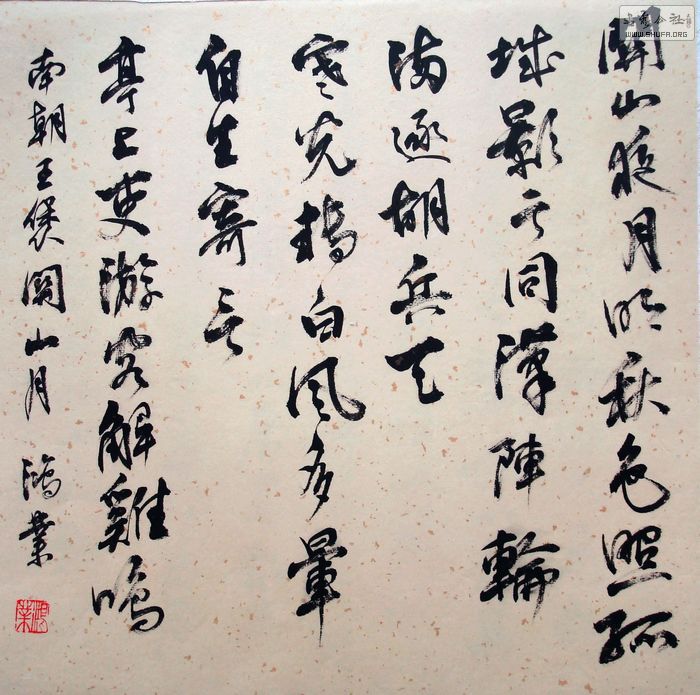 關山夜月明秋色照孤
城影亏同漢陣輪
滿逐胡兵天
寒光轉白風多暈
生寄言
亭上吏游客解雞鳴
南朝王褒關山月 鴻業
WWW.SHUFA.ORG